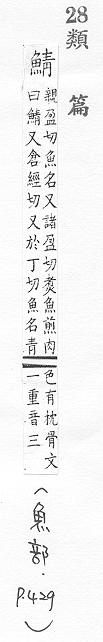 28
類篇
鯖
親盈切魚名又諸盈切煑魚煎肉
曰鯖又倉經切又於丁切魚名青
色有枕骨文
一重音三
(魚部.
P.429)